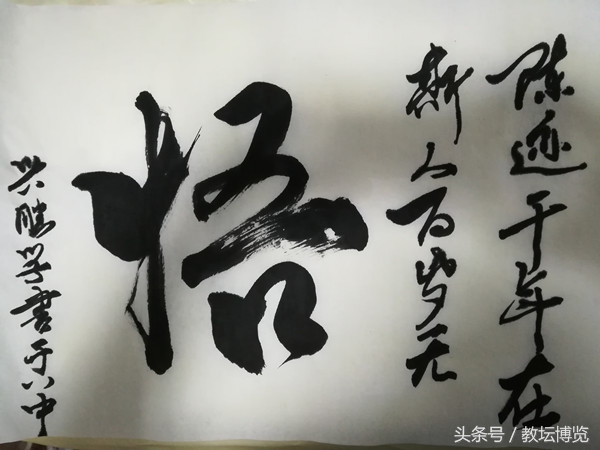 陈迹千年在
斯人百岁无
悟
兴胜学书于八中
头条号／教坛博览